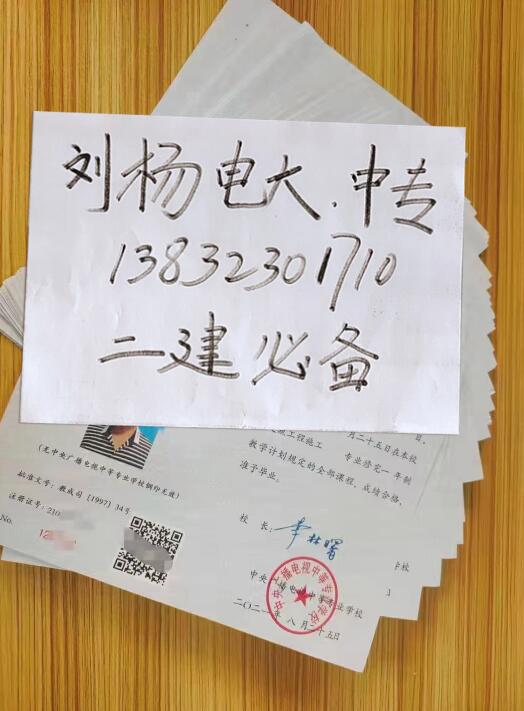 刘杨电大.中专
13832301710
二建必备
工程施工
月二十五日在本校
专业修完一年制
教学计划规定的全部课程，成绩合格，
准予毕业。
(无中央广播电视中等专业学校钢印无效)
批准文号：教成司【1997】34号
注册证号：210
No.
校长：
李林曙
中央广播电视中等专业学校
二〇二一年八月二十五日